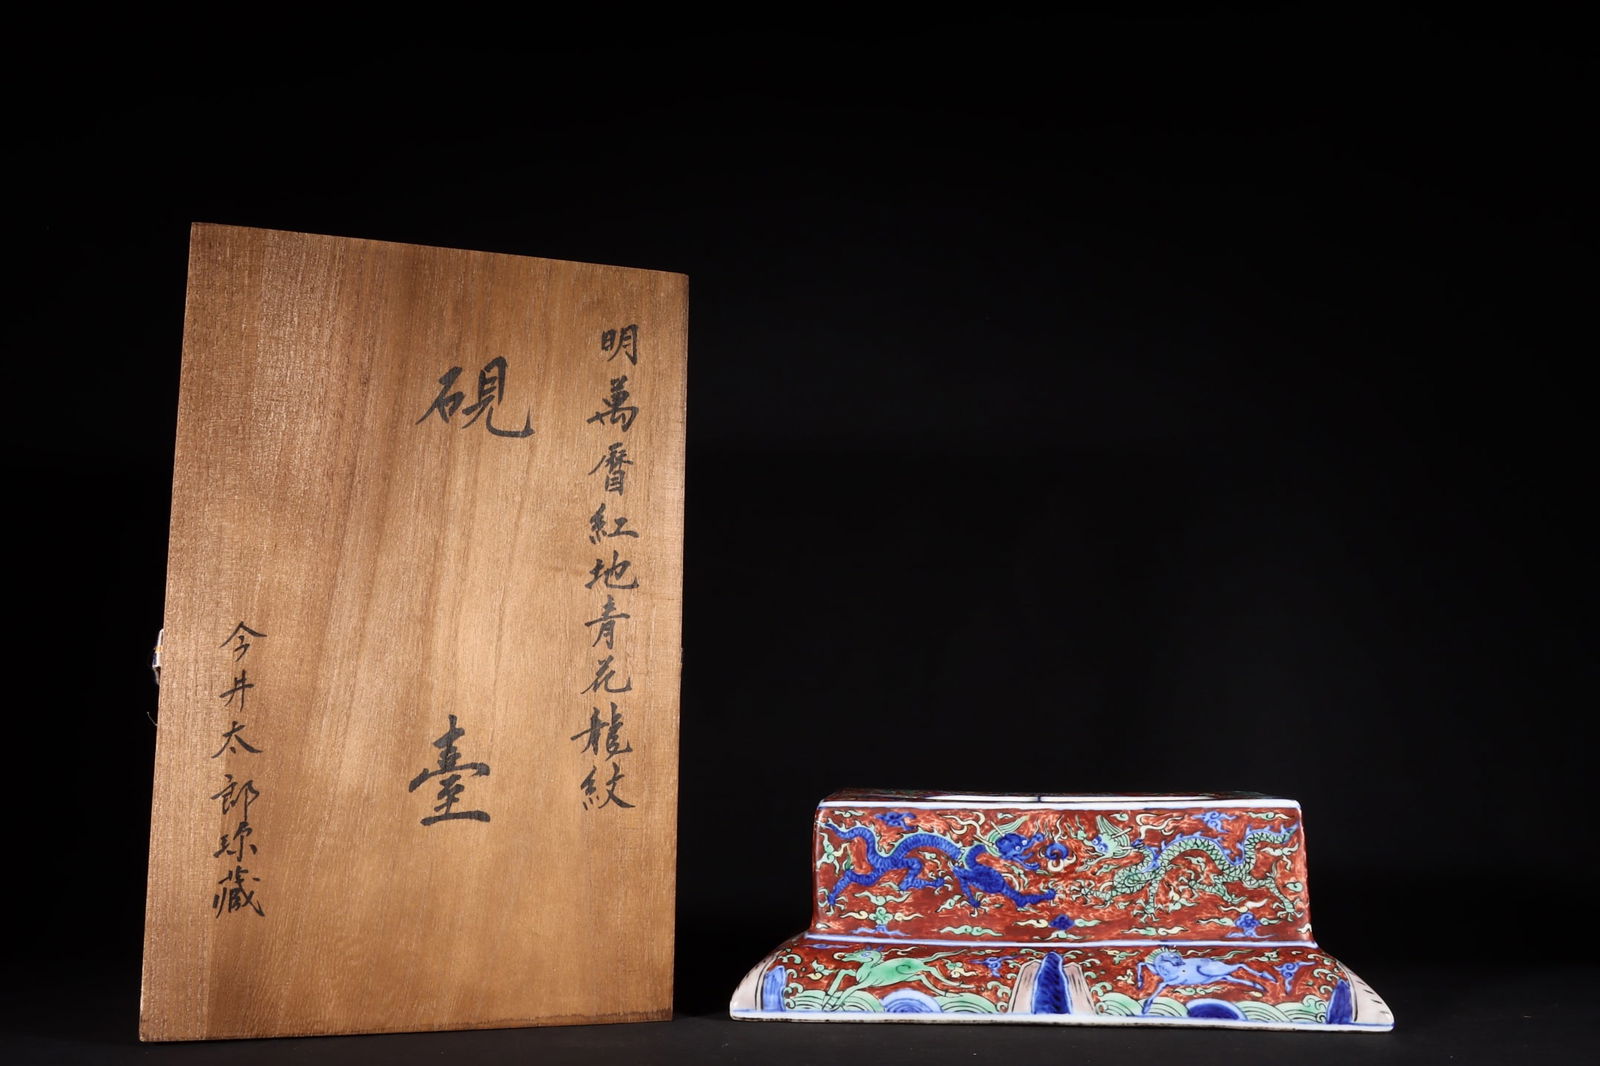 明萬曆紅地青花龍紋
硯臺
今井太郎珍藏